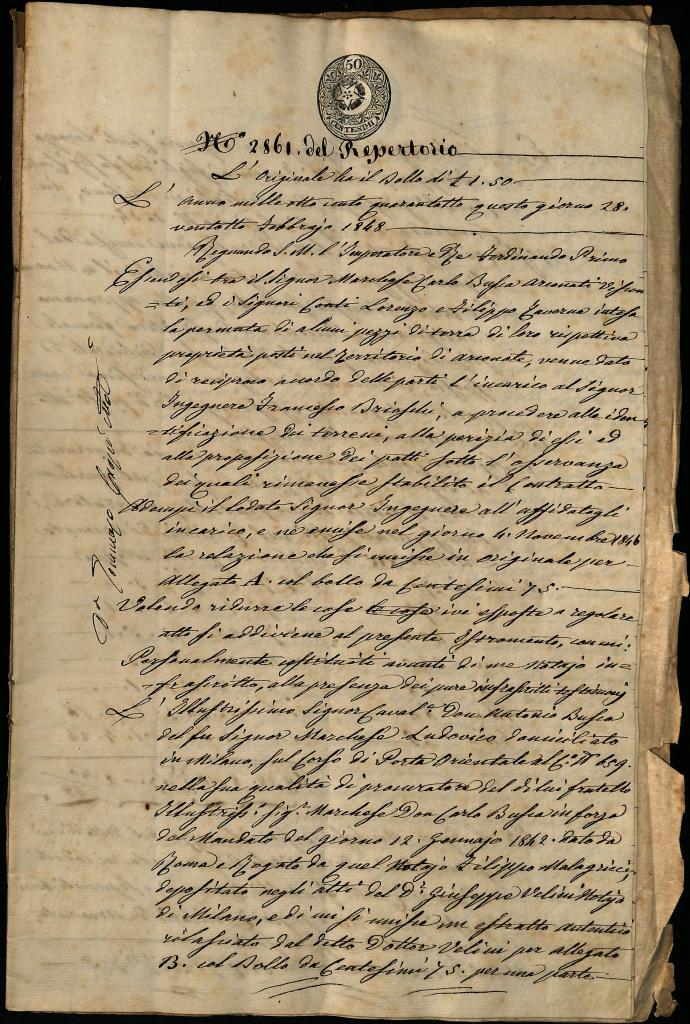 50
CENTESIMI
N.º 2861. del Repertorio
L'Originale ha il Bollo di £ 1.50
L'Anno mille otto cento quarantotto questo giorno 28.
ventotto Febbrajo 1848
Regnando S. M. l'Imperatore e Re Ferdinando Primo
Essendosi tra il Signor Marchese Carlo Busca Arconati Viscon=
=ti, ed i Signori Conti Lorenzo e Filippo Taverna intesa
la permuta di alcuni pezzi di terra di loro rispettiva
proprietà posti nel Territorio di Arconate, venne dato
di reciproco accordo delle parti l'incarico al Signor
Ingegnere Francesco Brioschi, a procedere alla iden=
=tificazione dei terreni, alla perizia di essi ed
alla proposizione dei patti sotto l'osservanza
dei quali rimanesse stabilito il Contratto
Adempì il lodato Signor Ingegnere all'affidatogli
incarico, e ne emise nel giorno 4. Novembre 1846
la relazione che si unisce in originale per
allegato A. col bollo da Centesimi 75.
Volendo ridurre le cose le cose ivi esposte a regolare
atto si addiviene al presente Istromento, con cui:
Personalmente costituiti avanti di me Notajo in=
=frascritto, alla presenza dei pure infrascritti testimonj
L'Illustrissimo Signor Caval.e Don Antonio Busca
del fu Signor Marchese Ludovico domiciliato
in Milano, sul Corso di Porta Orientale al C.º N.º 659.
nella sua qualità di procuratore del di lui fratello
Illustriss.º Sig.r Marchese Don Carlo Busca in forza
del Mandato del giorno 12. Gennajo 1842. dato da
Roma e Rogato da quel Notajo Filippo Malagricci
depositato negli atti del D.r Giuseppe Velini Notajo
di Milano, e di cui si unisce un estratto autentico
rilasciato dal detto Dottor Velini per allegato
B. col Bollo da Centesimi 75. per una parte
D.r Tommaso